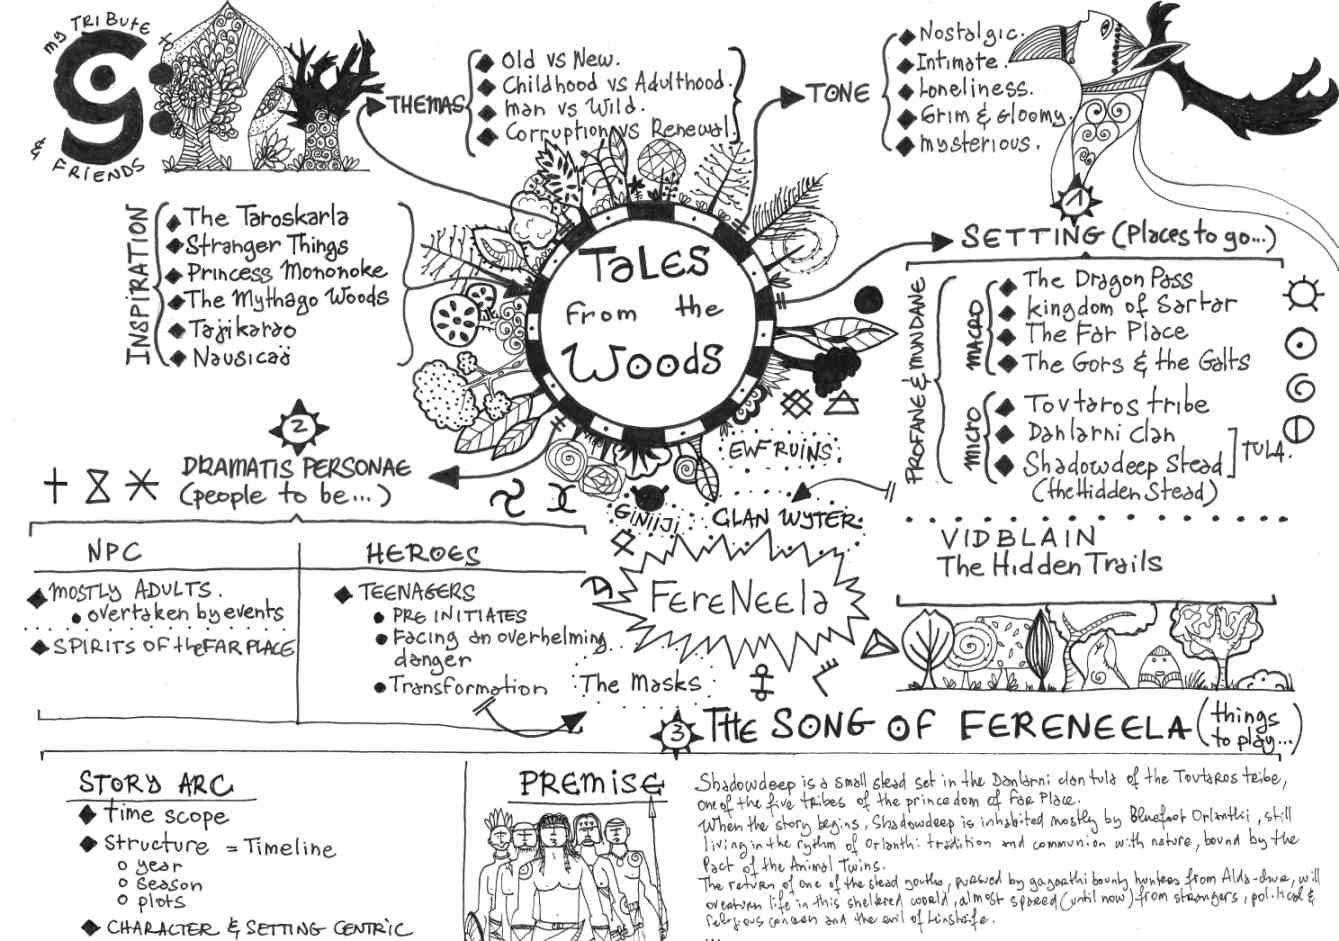 my TRIBUTE to
g:
& FRIENDS
THEMAS
Old vs New.
Childhood vs Adulthood.
man vs Wild.
Corruption vs Renewal.
TONE
Nostalgic.
Intimate.
Loneliness.
Grim & Gloomy.
mysterious.
INSPIRATION
The Taroskarla
Stranger Things
Princess Mononoke
The Mythago Woods
Tajikarao
Nausicaä
TaLES
From the
WoodS
1
SETTING (Places to go...)
PROFANE & MUNDANE
MACRO
The Dragon Pass
kingdom of Sartar
The Far Place
The Gors & the Galts
MICRO
Tovtaros tribe
Danlarni clan
Shadowdeep Stead
(the Hidden Stead)
TULA.
EWF RUINS.
GINIIJI
CLAN WYTER.
VIDBLAIN
The Hidden Trails
2
DRAMATIS PERSONAE
(people to be...)
NPC
MOSTLY ADULTS.
overtaken by events
SPIRITS OF the FAR PLACE
HEROES
TEENAGERS
PRE INITIATES
Facing an overhelming
danger
Transformation
FereNeela
The Masks
3 THE SONG OF FERENEELA (things
to play...)
STORY ARC
time scope
Structure = Timeline
year
season
plots
CHARACTER & SETTING CENTRIC
PREMISE
Shadowdeep is a small stead set in the Danlarni clan tula of the Tovtaros tribe,
one of the five tribes of the princedom of Far Place.
When the story begins, Shadowdeep is inhabited mostly by Bluefoot Orlanthii, still
living in the rythm of Orlanthi tradition and communion with nature, bound by the
Pact of the Animal Twins.
The return of one of the stead youths, pursued by bounty hunters from Alda-chur, will
overturn life in this sheltered world, almost spared (until now) from strangers, political &
religious concern and the evil of